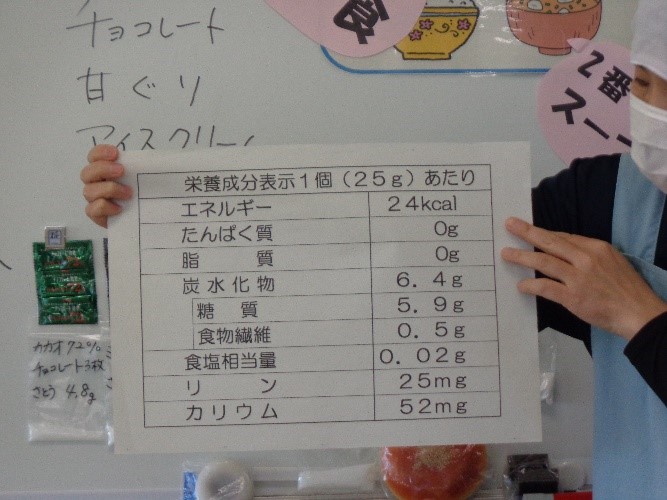 チョコレート
甘ぐり
アイスクリーム
食
2番
スー
栄養成分表示1個(25g)あたり
エネルギー 24kcal
たんぱく質 0g
脂 質 0g
炭水化物 6.4g
糖 質 5.9g
食物繊維 0.5g
食塩相当量 0.02g
リ ン 25mg
カリウム 52mg
カカオ72%
チョコレート3枚
さとう 4.8g